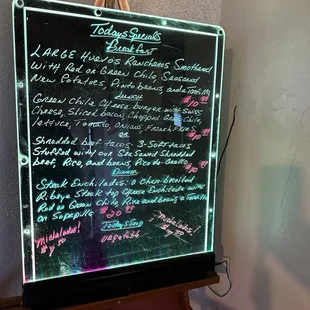 Todays Specials
Breakfast
LARGE Huevos Rancheros Smothered
with Red or Green Chile, Seasoned
New Potatoes, Pinto beans, and a Tortilla
$10
Lunch
Green Chile Cheese burger with Swiss
Cheese, Sliced bacon, Chopped Green Chile
lettuce, Tomato, onions French Fries
OR
$10
Shredded beef tacos 3 Soft tacos
Stuffed with our Seasoned Shredded
beef, Rice, and beans, Pico de Gallo
$10
Dinner
Steak Enchiladas: a Char broiled
Ribeye Steak top Cheese Enchiladas with
Red or Green Chile Rice and beans a Tortilla
or Sopapilla
Micheladas!
Todays Soup
Vegetable
Micheladas!